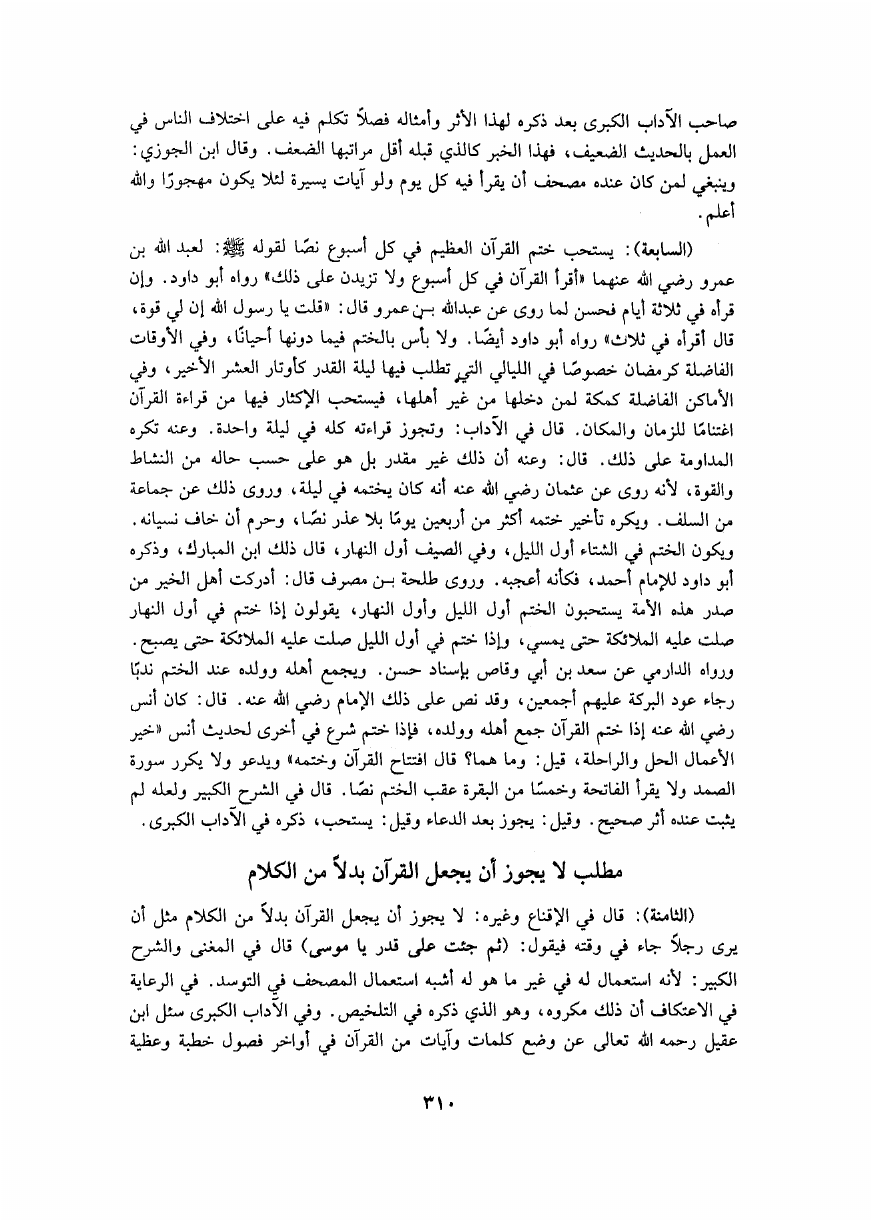 صاحب الآداب الكبرى بعد ذكره لهذا الأثر وأمثاله فصلاً تكلم فيه على اختلاف الناس في
العمل بالحديث الضعيف، فهذا الخبر كالذي قبله أقل مراتبها الضعف. وقال ابن الجوزي:
وينبغي لمن كان عنده مصحف أن يقرأ فيه كل يوم ولو آيات يسيرة لئلا يكون مهجورًا والله
أعلم.
(السابعة): يستحب ختم القرآن العظيم في كل أسبوع نصًا لقوله ﷺ: لعبد الله بن
عمرو رضي الله عنهما «أقرأ القرآن في كل أسبوع ولا تزيدن على ذلك» رواه أبو داود. وإن
قرأه في ثلاثة أيام فحسن لما روى عن عبدالله بن عمرو قال: «قلت يا رسول الله إن لي قوة،
قال أقرأه في ثلاث» رواه أبو داود أيضًا. ولا بأس بالختم فيما دونها أحيانًا، وفي الأوقات
الفاضلة كرمضان خصوصًا في الليالي التي تطلب فيها ليلة القدر كأوتار العشر الأخير، وفي
الأماكن الفاضلة كمكة لمن دخلها من غير أهلها، فيستحب الإكثار فيها من قراءة القرآن
اغتنامًا للزمان والمكان. قال في الآداب: وتجوز قراءته كله في ليلة واحدة. وعنه تكره
المداومة على ذلك. قال: وعنه أن ذلك غير مقدر بل هو على حسب حاله من النشاط
والقوة، لأنه روى عن عثمان رضي الله عنه أنه كان يختمه في ليلة، وروى ذلك عن جماعة
من السلف. ويكره تأخير ختمه أكثر من أربعين يومًا بلا عذر نصًا، وحرم أن خاف نسيانه.
ويكون الختم في الشتاء أول الليل، وفي الصيف أول النهار، قال ذلك ابن المبارك، وذكره
أبو داود للإمام أحمد، فكأنه أعجبه. وروى طلحة بن مصرف قال: أدركت أهل الخير من
صدر هذه الأمة يستحبون الختم أول الليل وأول النهار، يقولون إذا ختم في أول النهار
صلت عليه الملائكة حتى يمسي، وإذا ختم في أول الليل صلت عليه الملائكة حتى يصبح.
ورواه الدارمي عن سعد بن أبي وقاص بإسناد حسن. ويجمع أهله وولده عند الختم ندبًا
رجاء عود البركة عليهم أجمعين، وقد نص على ذلك الإمام رضي الله عنه. قال: كان أنس
رضي الله عنه إذا ختم القرآن جمع أهله وولده، فإذا ختم شرع في أخرى لحديث أنس «خير
الأعمال الحل والراحلة، قيل: وما هما؟ قال افتتاح القرآن وختمه» ويدعو ولا يكرر سورة
الصمد ولا يقرأ الفاتحة وخمسًا من البقرة عقب الختم نصًا. قال في الشرح الكبير ولعله لم
يثبت عنده أثر صحيح. وقيل: يجوز بعد الدعاء وقيل: يستحب، ذكره في الآداب الكبرى.
مطلب لا يجوز أن يجعل القرآن بدلاً من الكلام
(الثامنة): قال في الإقناع وغيره: لا يجوز أن يجعل القرآن بدلاً من الكلام مثل أن
يرى رجلاً جاء في وقته فيقول: (ثم جئت على قدر يا موسى) قال في المغنى والشرح
الكبير: لأنه استعمال له في غير ما هو له أشبه استعمال المصحف في التوسد. في الرعاية
في الاعتكاف أن ذلك مكروه، وهو الذي ذكره في التلخيص. وفي الآداب الكبرى سئل ابن
عقيل رحمه الله تعالى عن وضع كلمات وآيات من القرآن في أواخر فصول خطبة وعظية
٣١٠